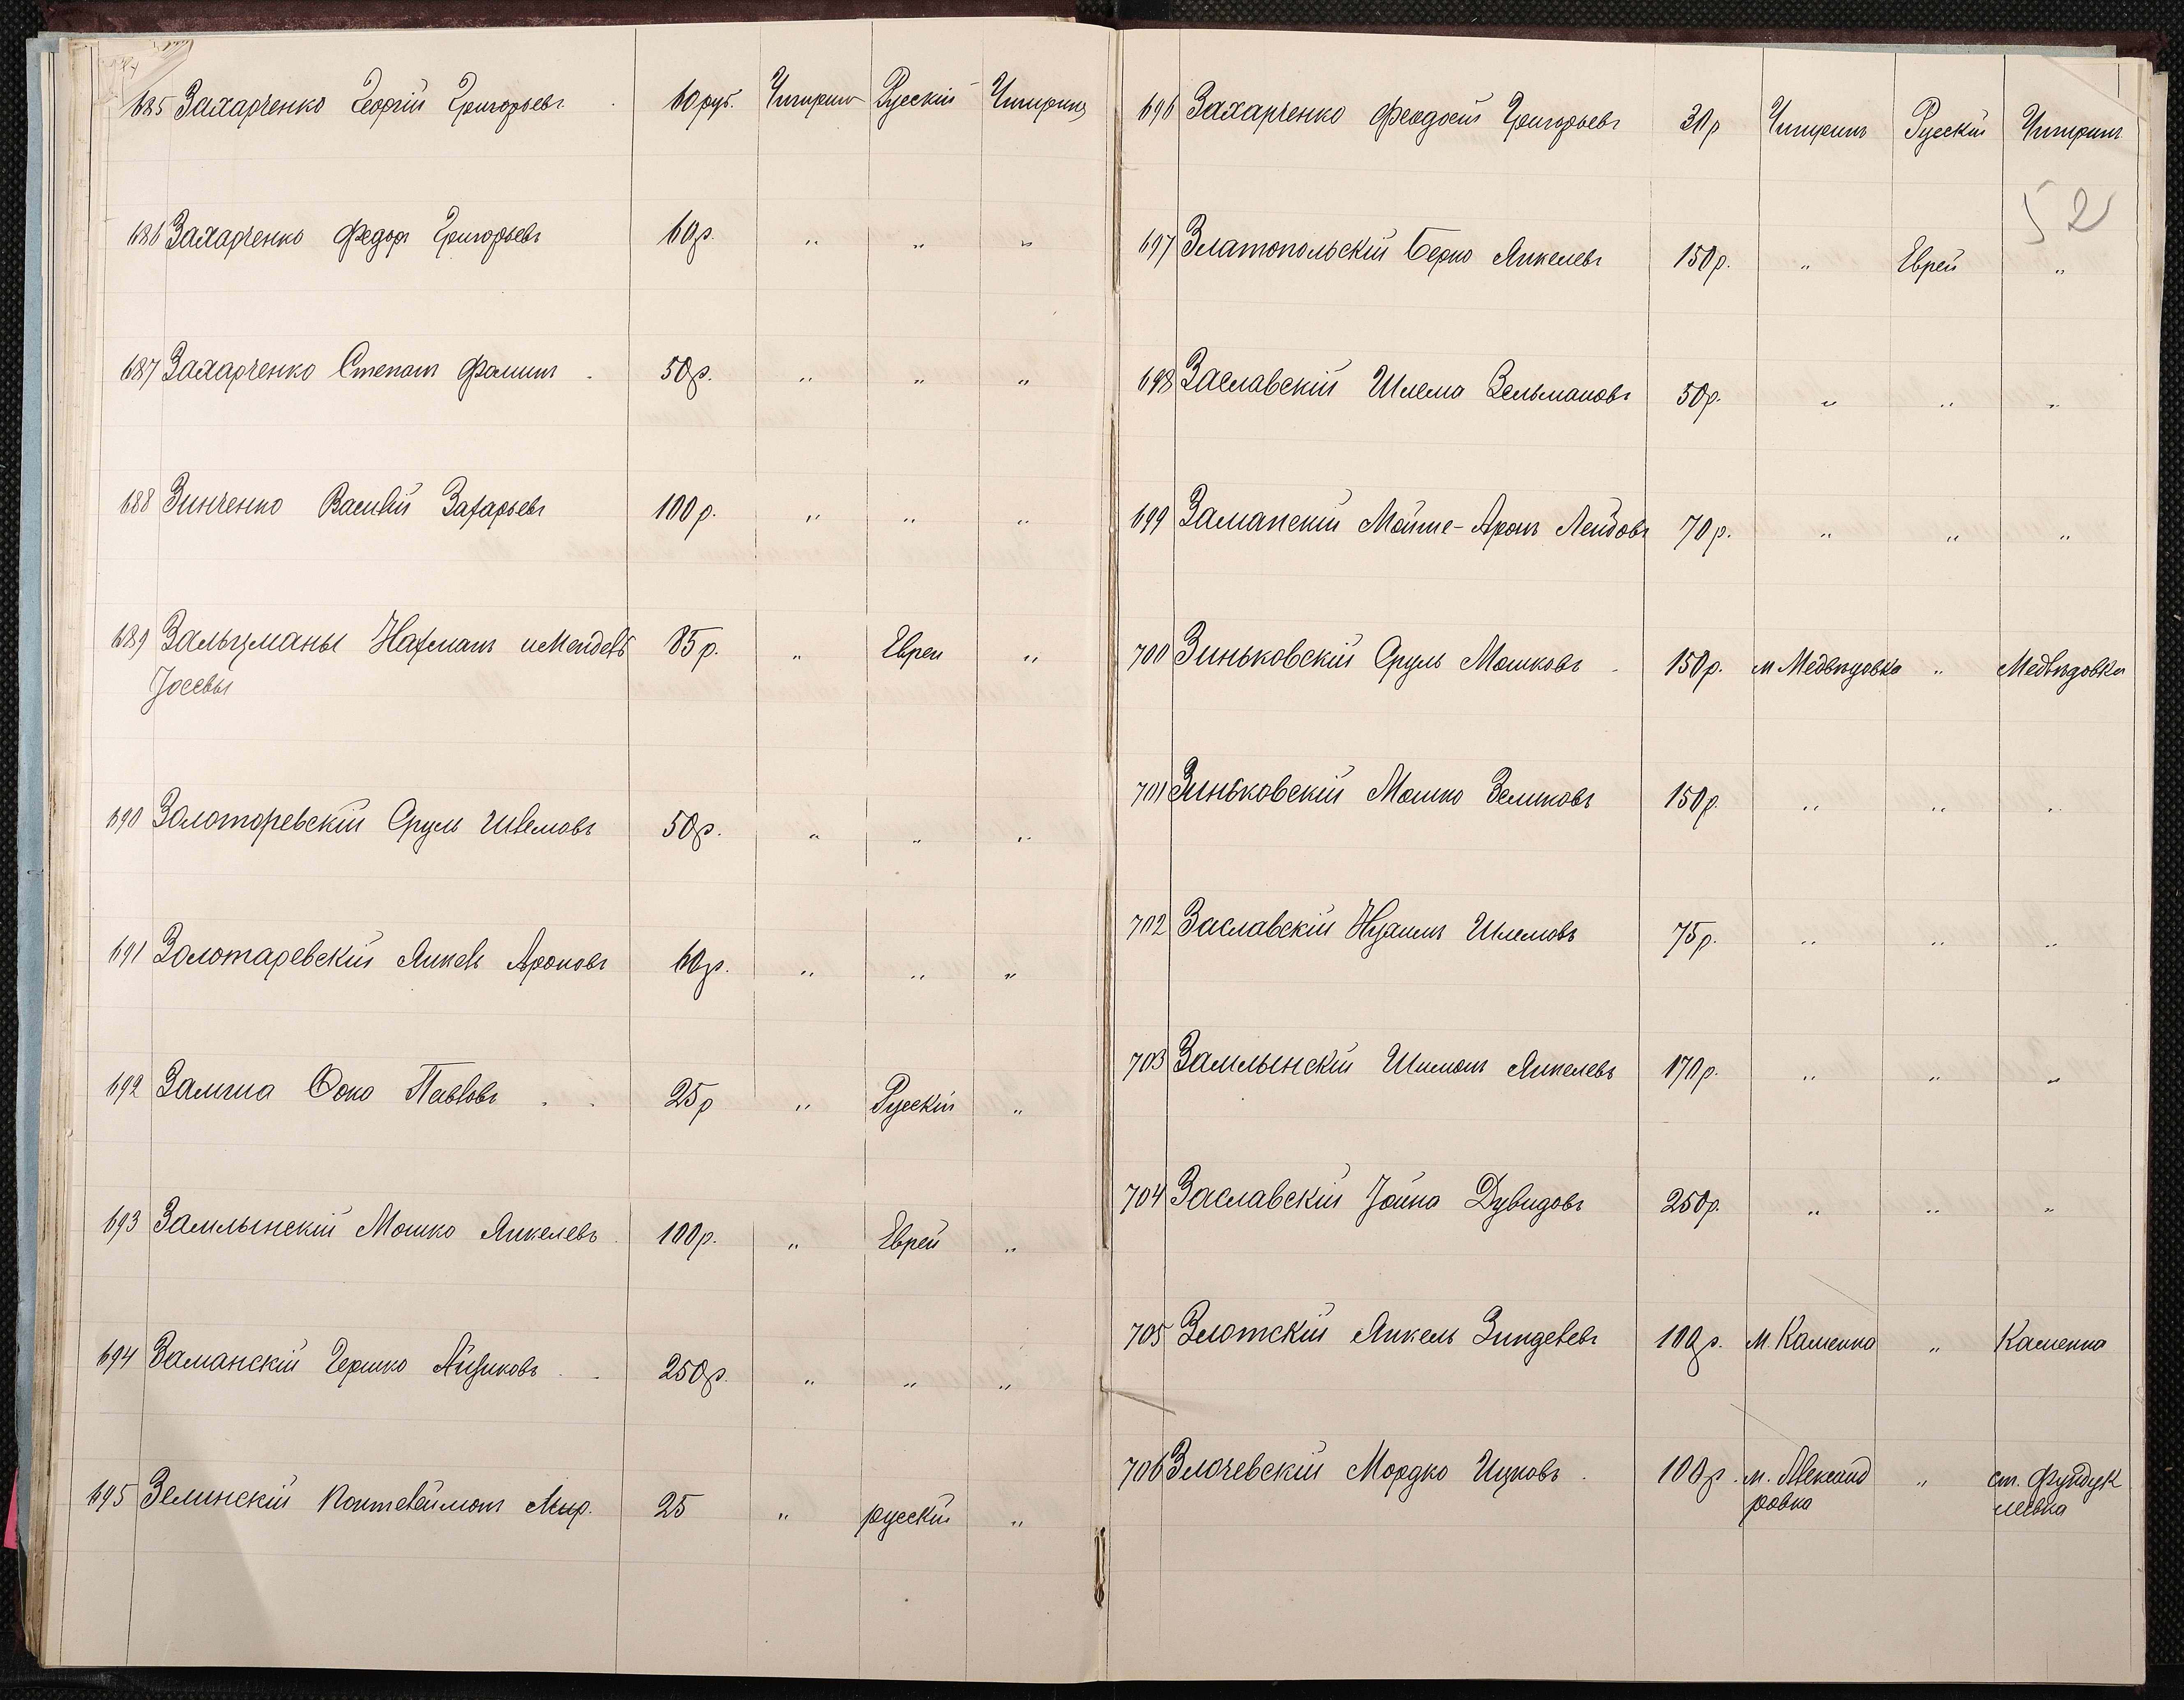 685 Захарченко Георгій Григорьевъ 60 руб. Чигиринъ Русскій Чигиринъ
686 Захарченко Федоръ Григорьевъ 60 р. " " "
687 Захарченко Степанъ Фоминъ 50 р. " " "
688 Зинченко Василій Захарьевъ 100 р. " " "
689 Зальцманы Нахманъ и Мендель 85 р. " Евреи "
Іосевы
690 Золоторевскій Сруль Шлемовъ 50 р. " " "
691 Золотаревскій Янкель Ароновъ 60 р. " " "
692 Павловъ 25 р " Русскій "
693 Замлынскій Мошко Янкелевъ 100 р. " Еврей "
694 Заманскій Гершко Айзиковъ 250 р. " " "
695 Зелинскій Пантелеймонъ 25 " русскій "
52
696 Захарченко Феодосій Григорьевъ 30 р Чигиринъ Русскій Чигиринъ
697 Златопольскій Берко Янкелевъ 150 р. " Еврей "
698 Заславскій Шлема Зельмановъ 50 р. " " "
699 Заманскій Мойше-Аронъ Лейбовъ 70 р. " " "
700 Зиньковскій Сруль Мошковъ 150 р. м Медвѣдовка " Медвѣдовка
701 Зиньковскій Мошко Зеликовъ 150 р. " " "
702 Заславскій Нухимъ Шлемовъ 75 р. " " "
703 Замлынскій Шимонъ Янкелевъ 170 р. " " "
704 Заславскій Іойна Дувидовъ 250 р. " " "
705 Злотскій Янкель Зинделевъ 100 р. м. Каменка " Каменка
706 Злочевскій Мордко Ицковъ 100 р. м. Александ " ст. Фундук
ровка леевка